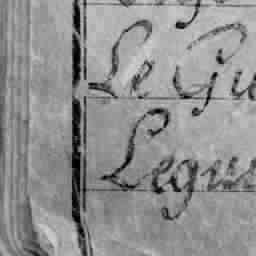 Le Gu
Legu